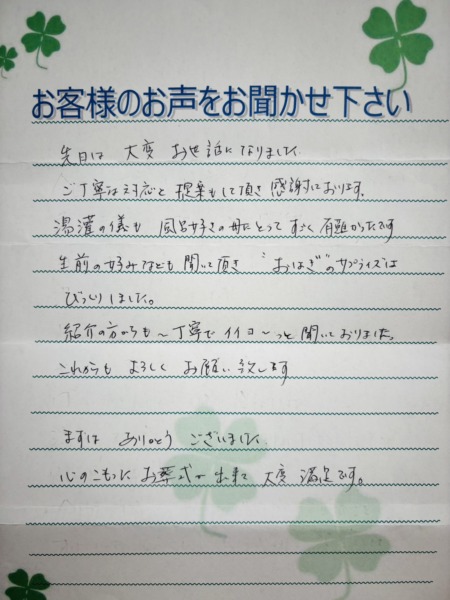 お客様のお声をお聞かせ下さい
先日は 大変 お世話になりました
ご丁寧な対応と提案もして頂き感謝しております。
湯灌の儀も 風呂好きの母にとって すごく 有難かったです
生前の好みなども 聞いて頂き "おはぎ"のサプライズは
びっくりしました。
紹介の方からも〜丁寧でイイヨ〜っと聞いておりました。
これからも よろしく お願い致します
まずは ありがとう ございました
心のこもった お葬式が出来て 大変 満足です。